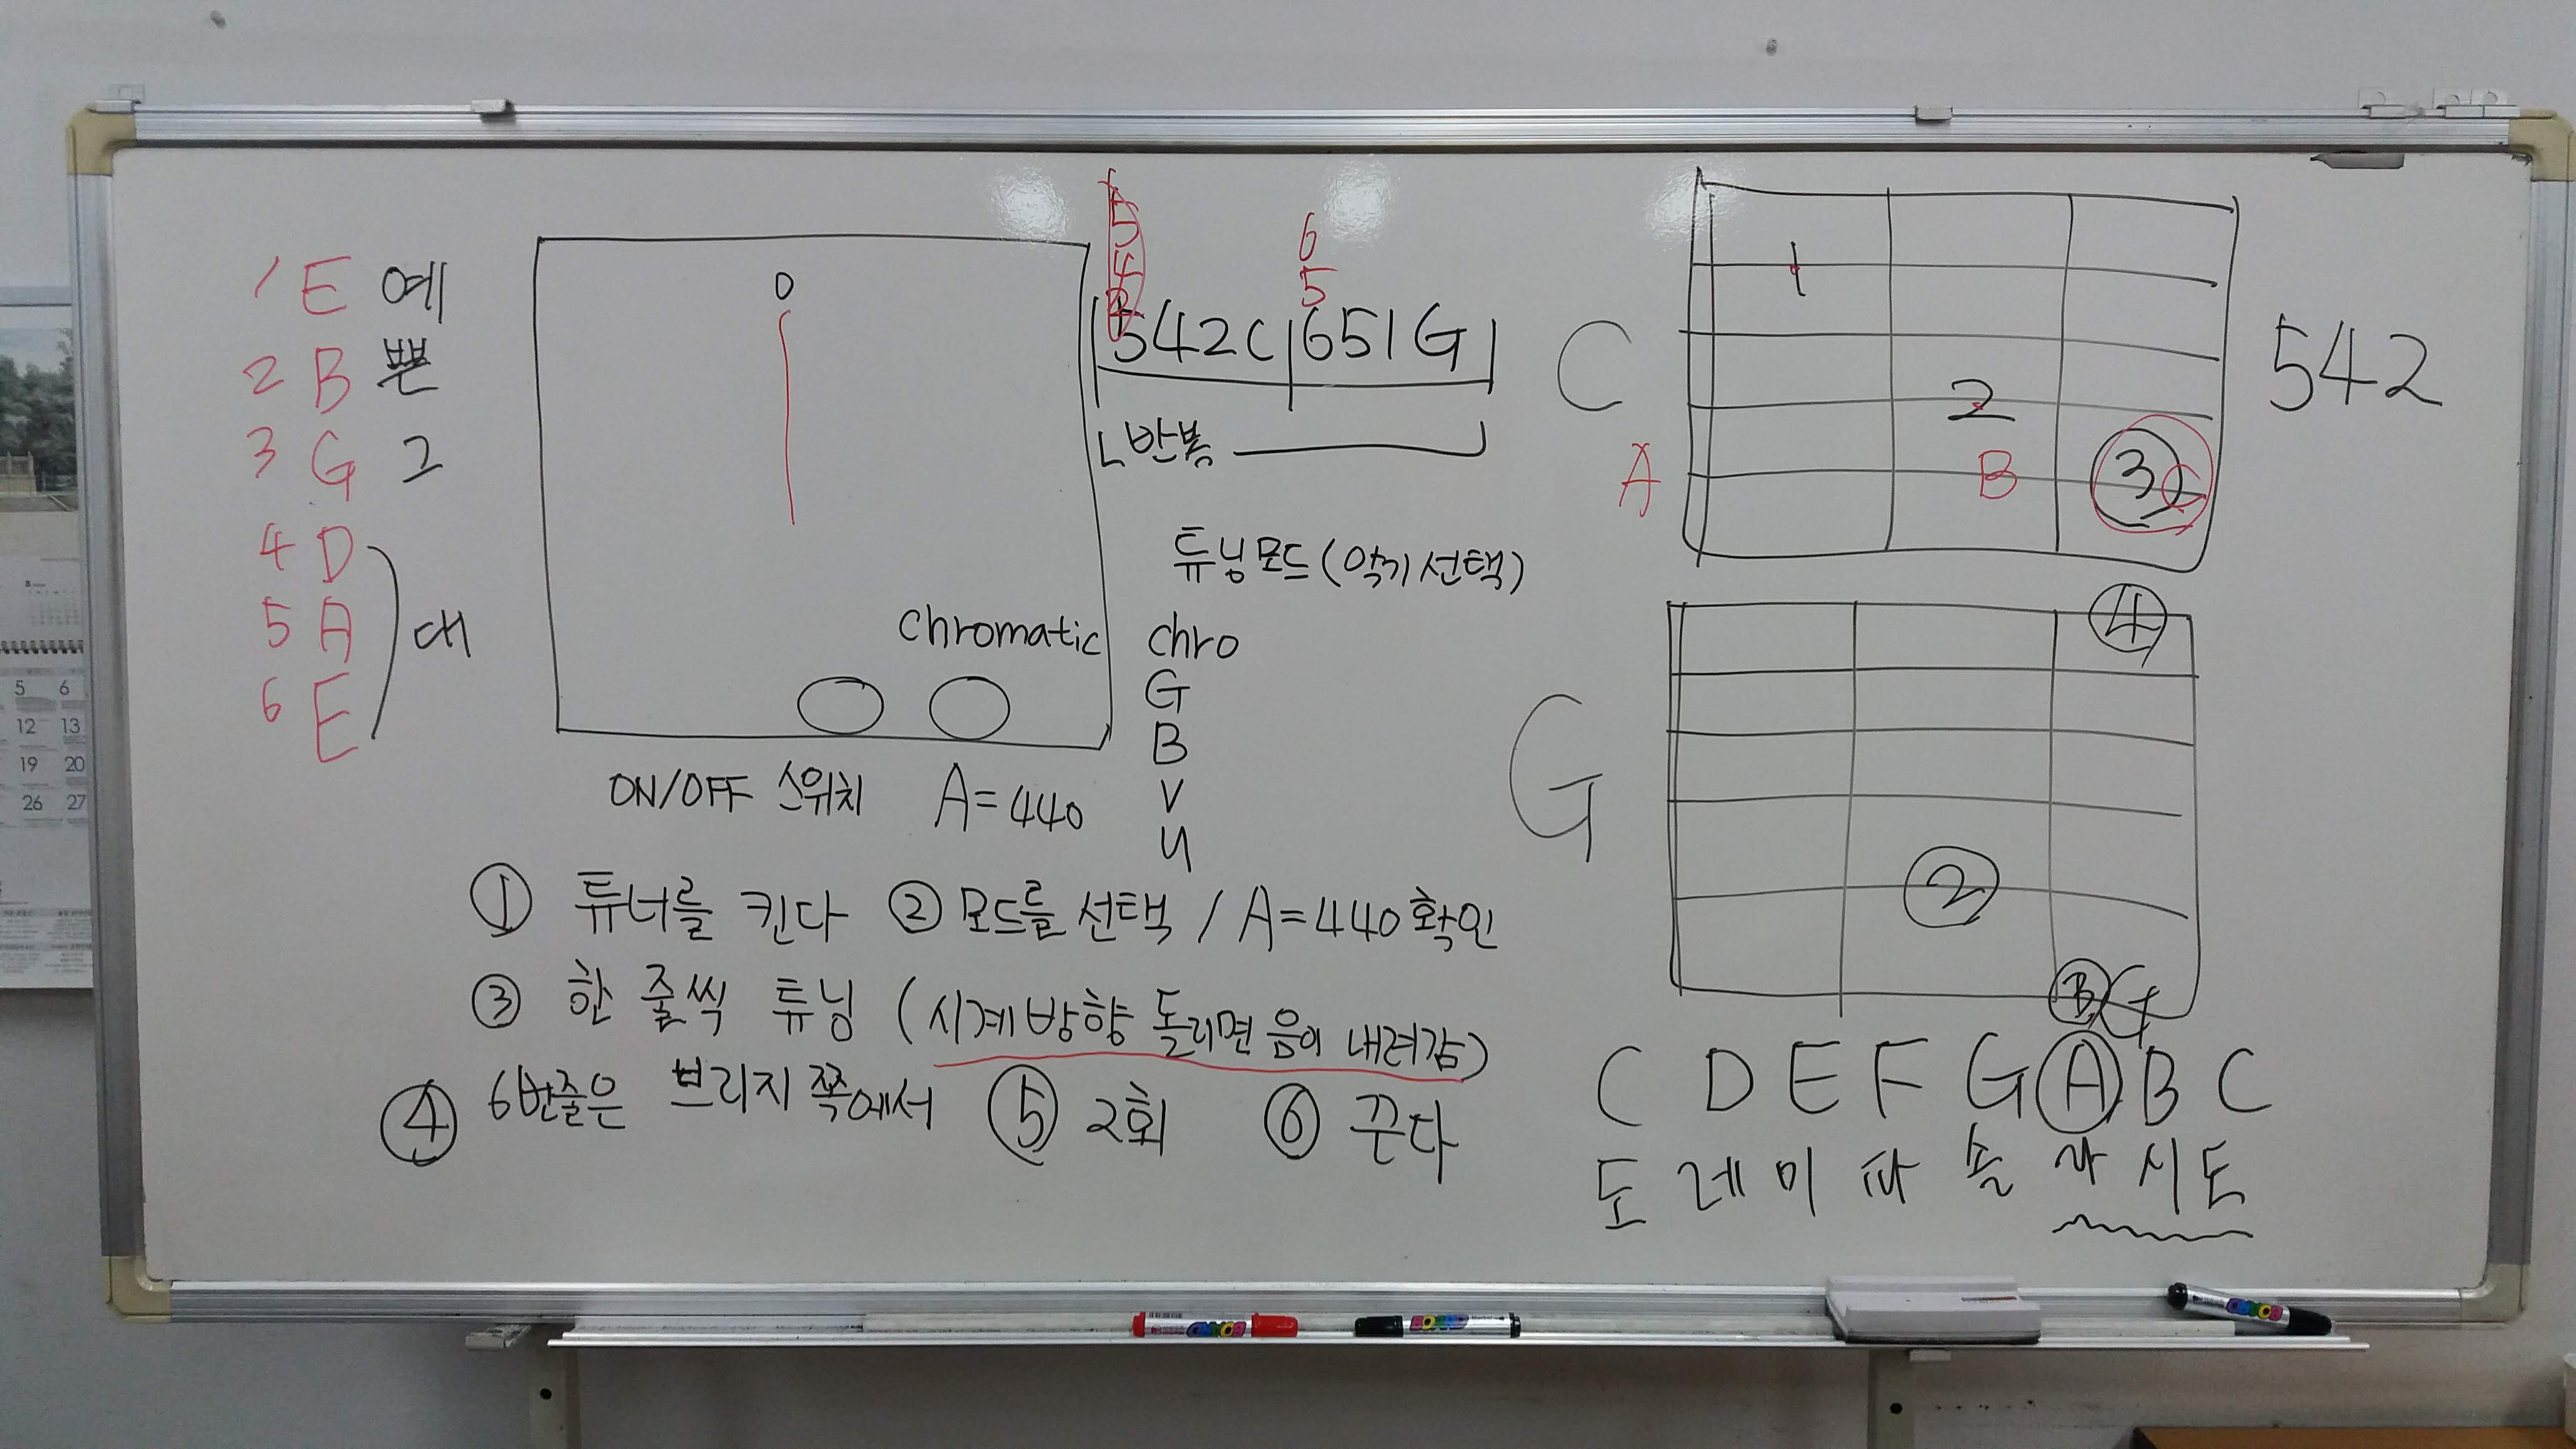 1 E 예
2 B 쁜
3 G 그
4 D
5 A 대
6 E
0
Chromatic
ON/OFF 스위치 A=440
5
4
2
6
5
542C 651G
반복
튜닝모드(악기선택)
chro
G
B
V
U
C
1
2
3 C
A B
542
G
4
2
3 G
① 튜너를 킨다 ② 모드를 선택 / A=440 확인
③ 한 줄씩 튜닝 (시계방향 돌리면 음이 내려감)
④ 6번줄은 브리지 쪽에서 ⑤ 2회 ⑥ 끈다
C D E F G A B C
도 레 미 파 솔 라 시 도
5 6
12 13
19 20
26 27